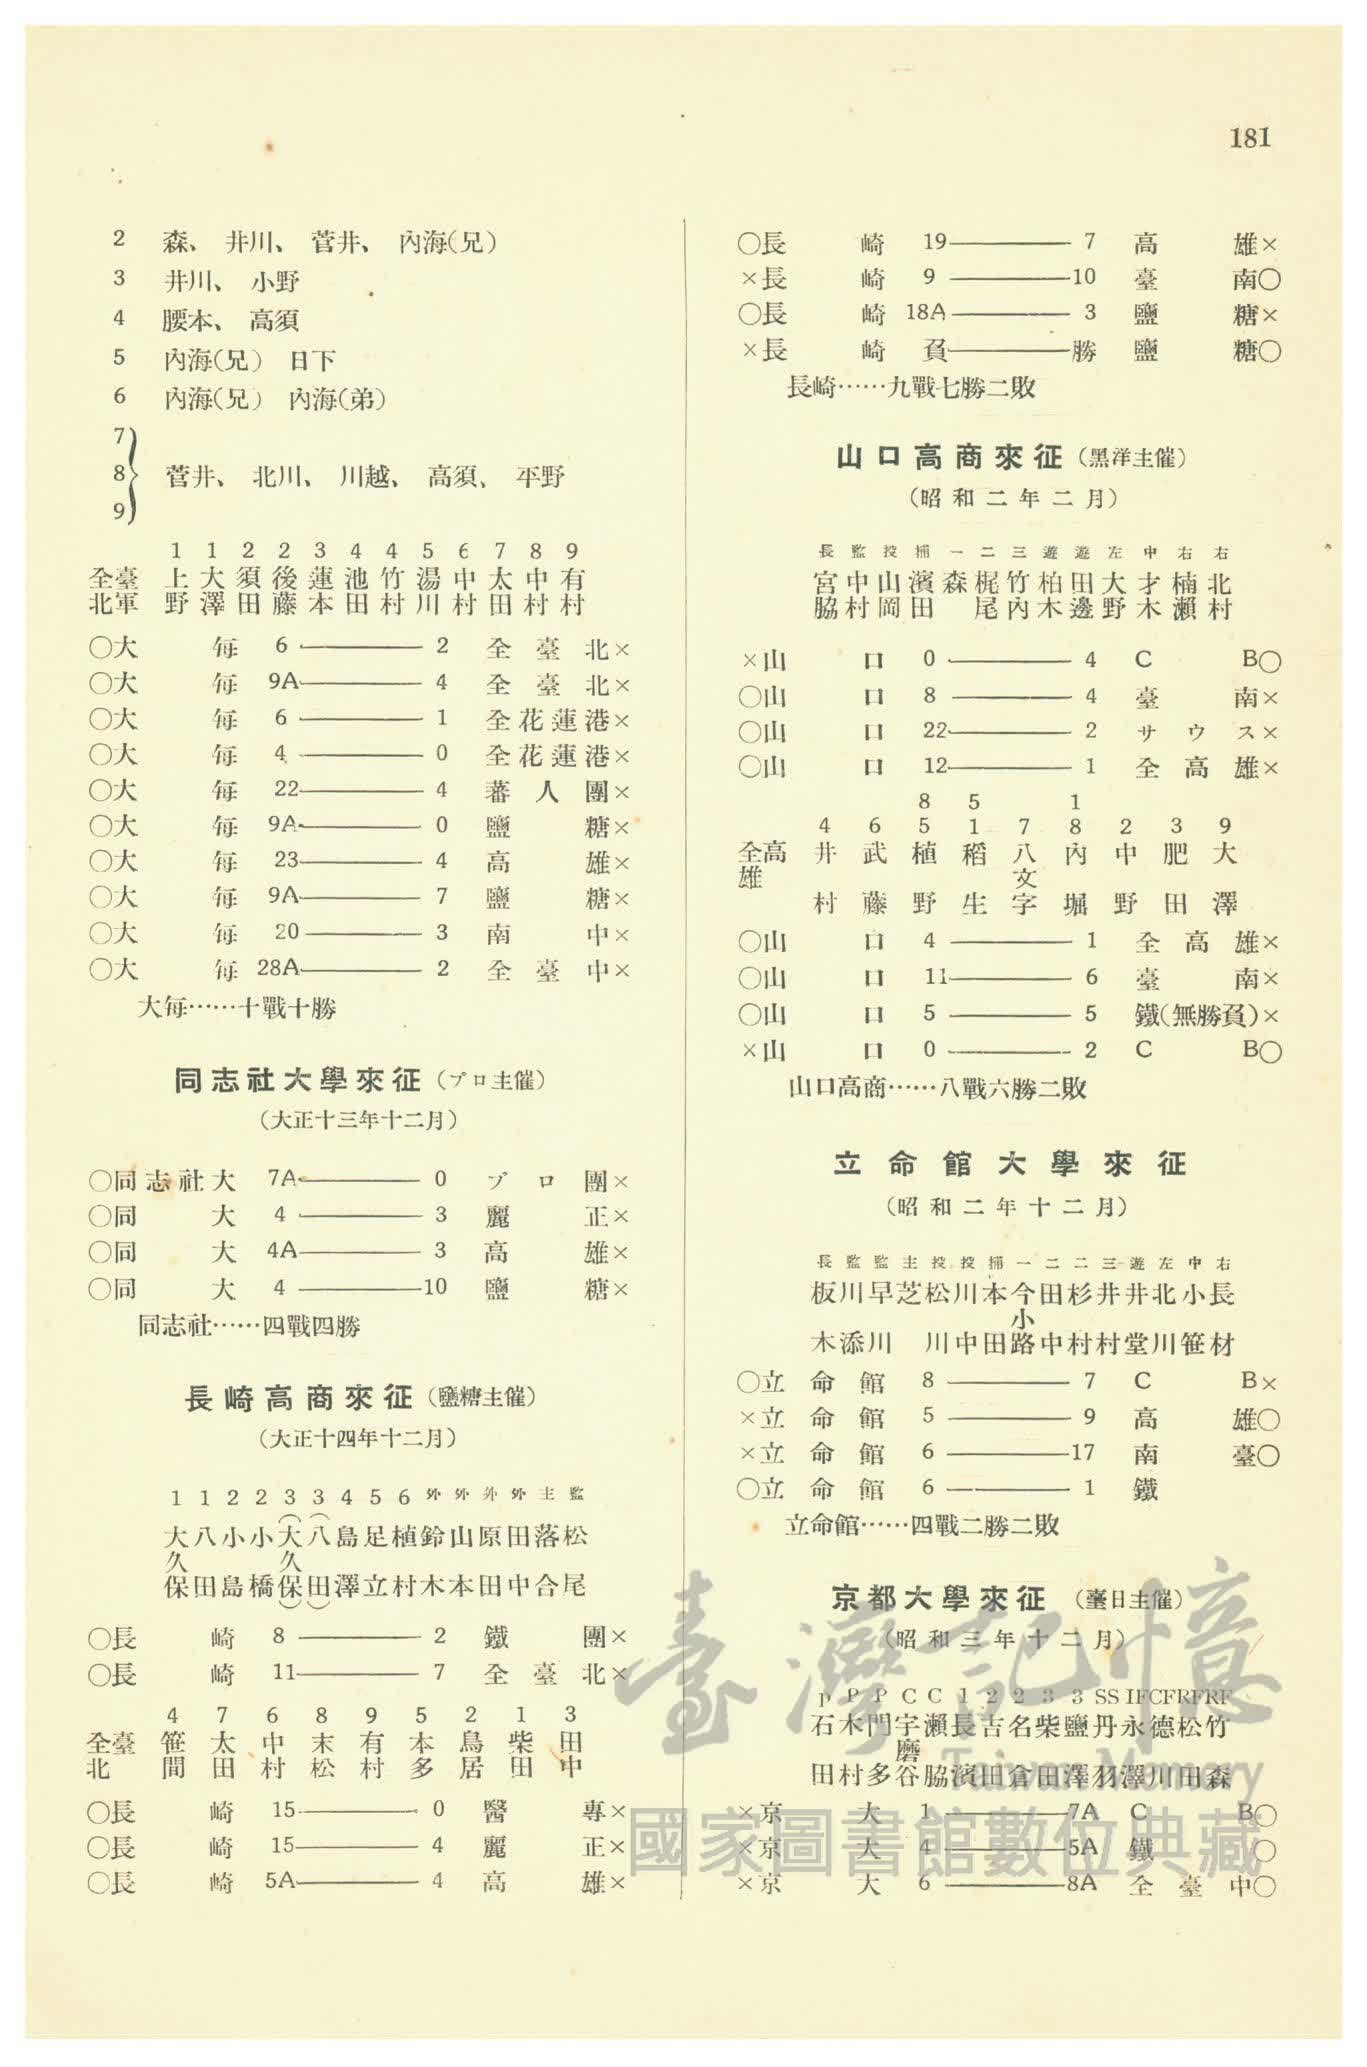 181
2 森、井川、菅井、內海(兄)
3 井川、小野
4 腰本、高須
5 內海(兄) 日下
6 內海(兄) 內海(弟)
7
8 菅井、北川、川越、高須、平野
9
1 1 2 2 3 4 4 5 6 7 8 9
全臺北軍 上野 大澤 須田 後藤 蓮本 池田 竹村 湯川 中村 太田 中村 有村
○大每 6 ─── 2 全臺北×
○大每 9A ─── 4 全臺北×
○大每 6 ─── 1 全花蓮港×
○大每 4 ─── 0 全花蓮港×
○大每 22 ─── 4 蕃人團×
○大每 9A ─── 0 鹽糖×
○大每 23 ─── 4 高雄×
○大每 9A ─── 7 鹽糖×
○大每 20 ─── 3 南中×
○大每 28A ─── 2 全臺中×
大每……十戰十勝
同志社大學來征(プロ主催)
(大正十三年十二月)
○同志社大 7A ─── 0 プロ團×
○同大 4 ─── 3 麗正×
○同大 4A ─── 3 高雄×
○同大 4 ─── 10 鹽糖×
同志社……四戰四勝
長崎高商來征(鹽糖主催)
(大正十四年十二月)
1 1 2 2 3 3 4 5 6 外 外 外 外 主 監
大久保 八田 小島 小橋 (大久保) (八田) 島澤 足立 植村 鈴木 山本 原田 田中 落合 松尾
○長崎 8 ─── 2 鐵團×
○長崎 11 ─── 7 全臺北×
4 7 6 8 9 5 2 1 3
全臺北 笹間 太田 中村 末松 有村 本多 鳥居 柴田 田中
○長崎 15 ─── 0 醫專×
○長崎 15 ─── 4 麗正×
○長崎 5A ─── 4 高雄×
○長崎 19 ─── 7 高雄×
×長崎 9 ─── 10 臺南○
○長崎 18A ─── 3 鹽糖×
×長崎 負 ─── 勝 鹽糖○
長崎……九戰七勝二敗
山口高商來征(黑洋主催)
(昭和二年二月)
長 監 投 捕 一 二 三 遊 遊 左 中 右 右
宮脇 中村 山岡 濱田 森 梶尾 竹內 柏木 田邊 大野 才木 楠瀨 北村
×山口 0 ─── 4 CB○
○山口 8 ─── 4 臺南×
○山口 22 ─── 2 サウス×
○山口 12 ─── 1 全高雄×
8 5 1
4 6 5 1 7 8 2 3 9
全高雄 井村 武藤 植野 稻生 八文字 內堀 中野 肥田 大澤
○山口 4 ─── 1 全高雄×
○山口 11 ─── 6 臺南×
○山口 5 ─── 5 鐵(無勝負)×
×山口 0 ─── 2 CB○
山口高商……八戰六勝二敗
立命館大學來征
(昭和二年十二月)
長 監 監 主 投 投 捕 一 二 二 三 遊 左 中 右
板木 川添 早川 芝 松川 川中 本田 今小路 田中 杉村 井村 井堂 北川 小笹 長材
○立命館 8 ─── 7 CB×
×立命館 5 ─── 9 高雄○
×立命館 6 ─── 17 南臺○
○立命館 6 ─── 1 鐵
立命館……四戰二勝二敗
京都大學來征 (臺日主催)
(昭和三年十二月)
P P P C C 1 2 2 3 3 SS IF CF RF RF
石田 木村 門多 宇磨谷 瀨脇 長濱 吉田 名倉 柴田 鹽澤 丹羽 永澤 德川 松田 竹森
×京大 1 ─── 7A CB○
×京大 4 ─── 5A 鐵○
×京大 6 ─── 8A 全臺中○
臺灣記憶
Taiwan Memory
國家圖書館數位典藏